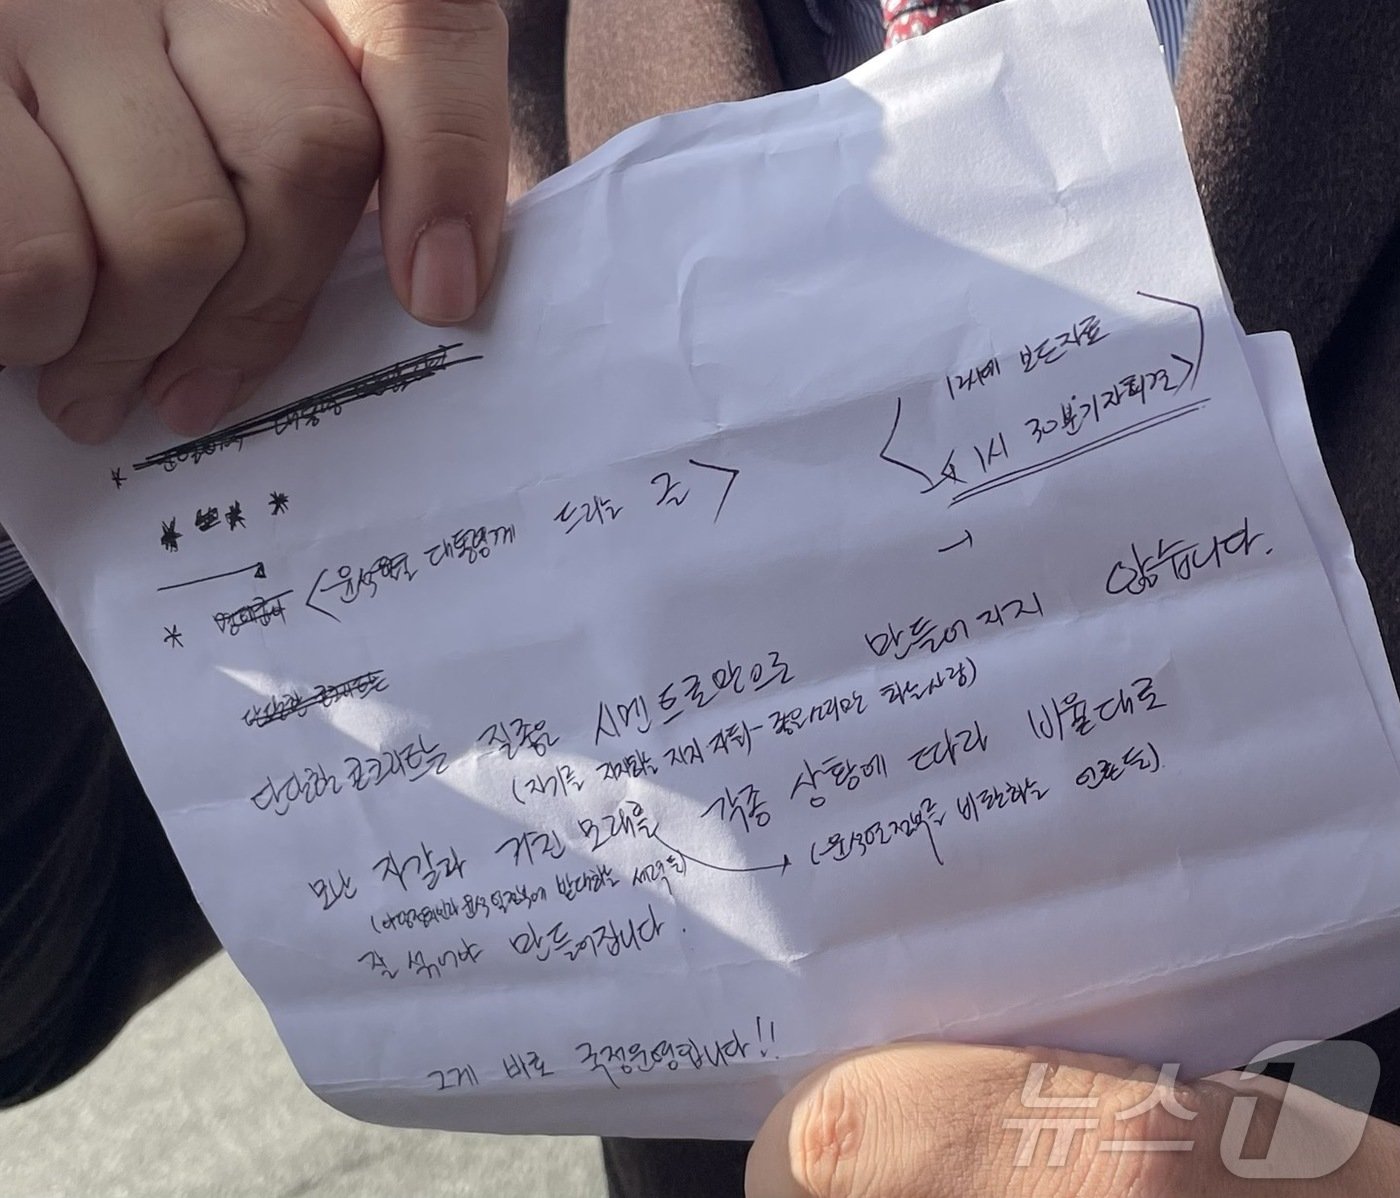 12시에 보도자료
* 1시 30분 기자회견
* <윤석열 대통령께 드리는 글>
단단한 콘크리트는 질좋은 시멘트로만으로 만들어지지 않습니다.
(자기를 지지하는 지지자들 - 좋은소리만 하는사람)
모난 자갈과 거친 모래을 각종 상황에 따라 비율대로
(야당정치인과 윤석열정부에 반대하는 세력들)
(윤석열정부를 비판하는 언론들)
잘 섞어야 만들어집니다.
그게 바로 국정운영입니다!!
뉴스1